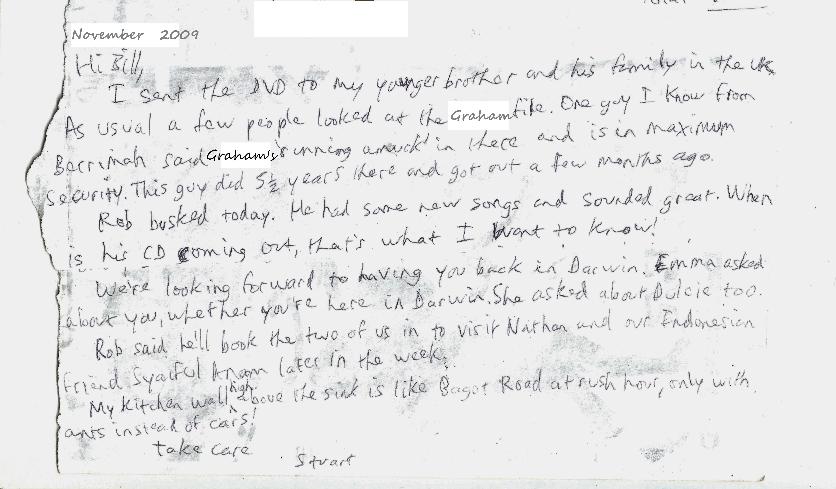 November 2009
Hi Bill,
I sent the DVD to my younger brother and his family in the UK
As usual a few people looked at the Graham file. One guy I know from
Berrimah said Graham's running amuck' in there and is in maximum
security. This guy did 5½ years there and got out a few months ago.
Rob busked today. He had some new songs and sounded great. When
is his CD coming out, that's what I want to know!
We're looking forward to having you back in Darwin. Emma asked
about you, whether you're here in Darwin. She asked about Dulcie too.
Rob said he'll book the two of us in to visit Nathan and our Indonesian
friend Syaiful Anam later in the week.
My kitchen wall high above the sink is like Bagot Road at rush hour, only with
ants instead of cars!
Take care
Stuart